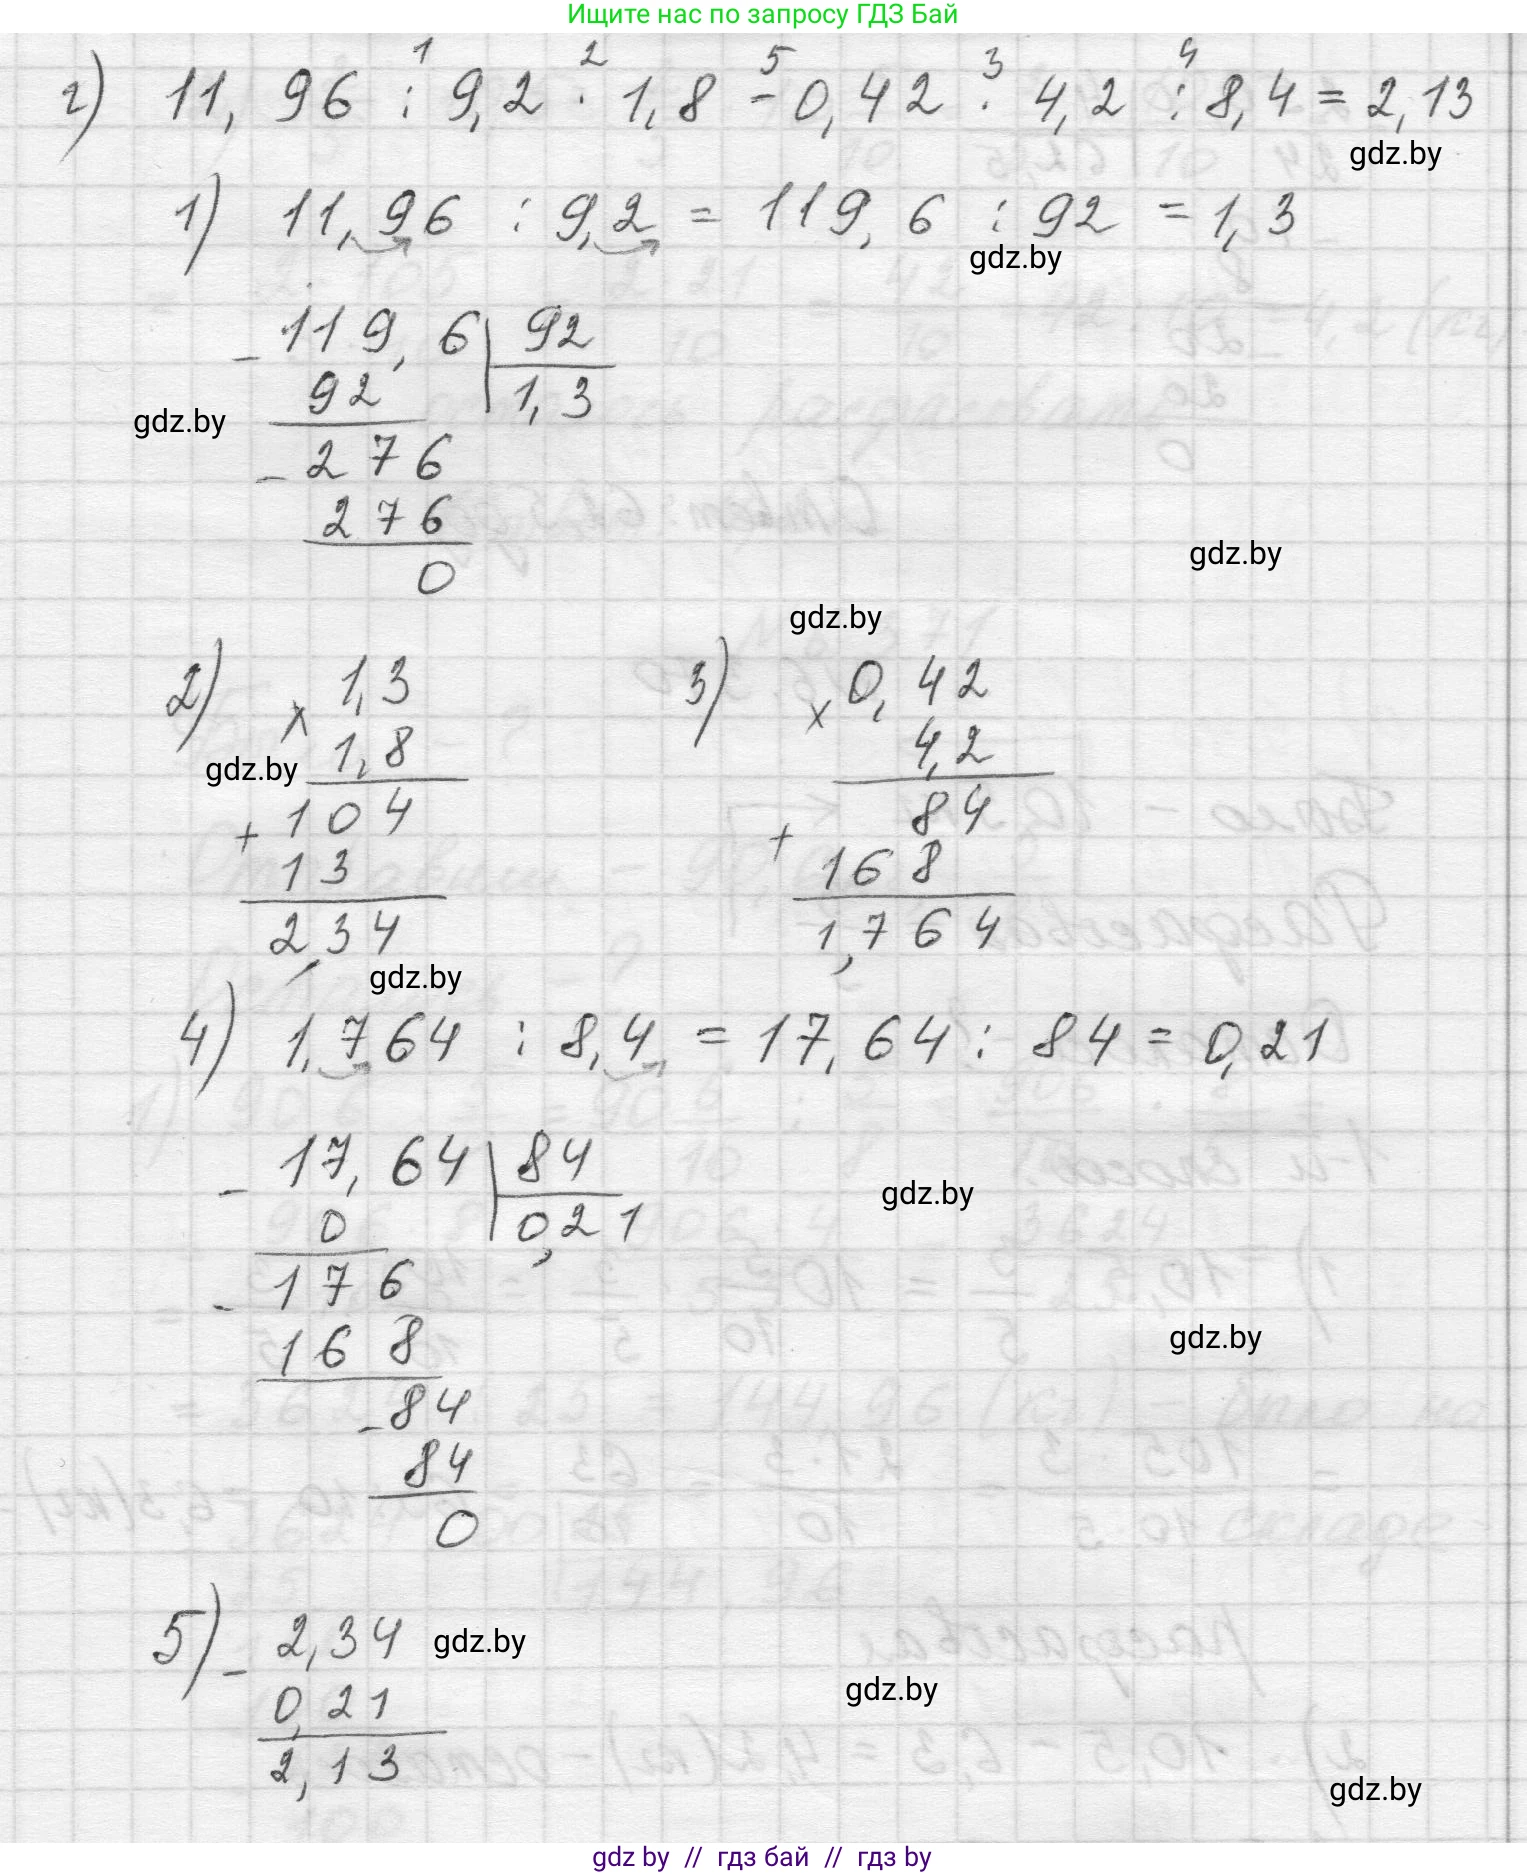 Ищите нас по запросу ГДЗ Бай
г) 11,96 : 9,2 · 1,8 - 0,42 · 4,2 : 8,4 = 2,13
1 2 5 3 4
gdz.by
1) 11,96 : 9,2 = 119,6 : 92 = 1,3
gdz.by
- 119,6 | 92
92 1,3
gdz.by
- 276
276
0
gdz.by
gdz.by
2) 1,3
× 1,8
gdz.by
+ 104
13
2,34
3) 0,42
× 4,2
+ 84
168
1,764
gdz.by
4) 1,764 : 8,4 = 17,64 : 84 = 0,21
- 17,64 | 84
0 0,21
gdz.by
- 176
168
gdz.by
- 84
84
0
5) - 2,34
gdz.by
0,21
gdz.by
2,13
gdz.by
gdz by // гдз бай // гдз by